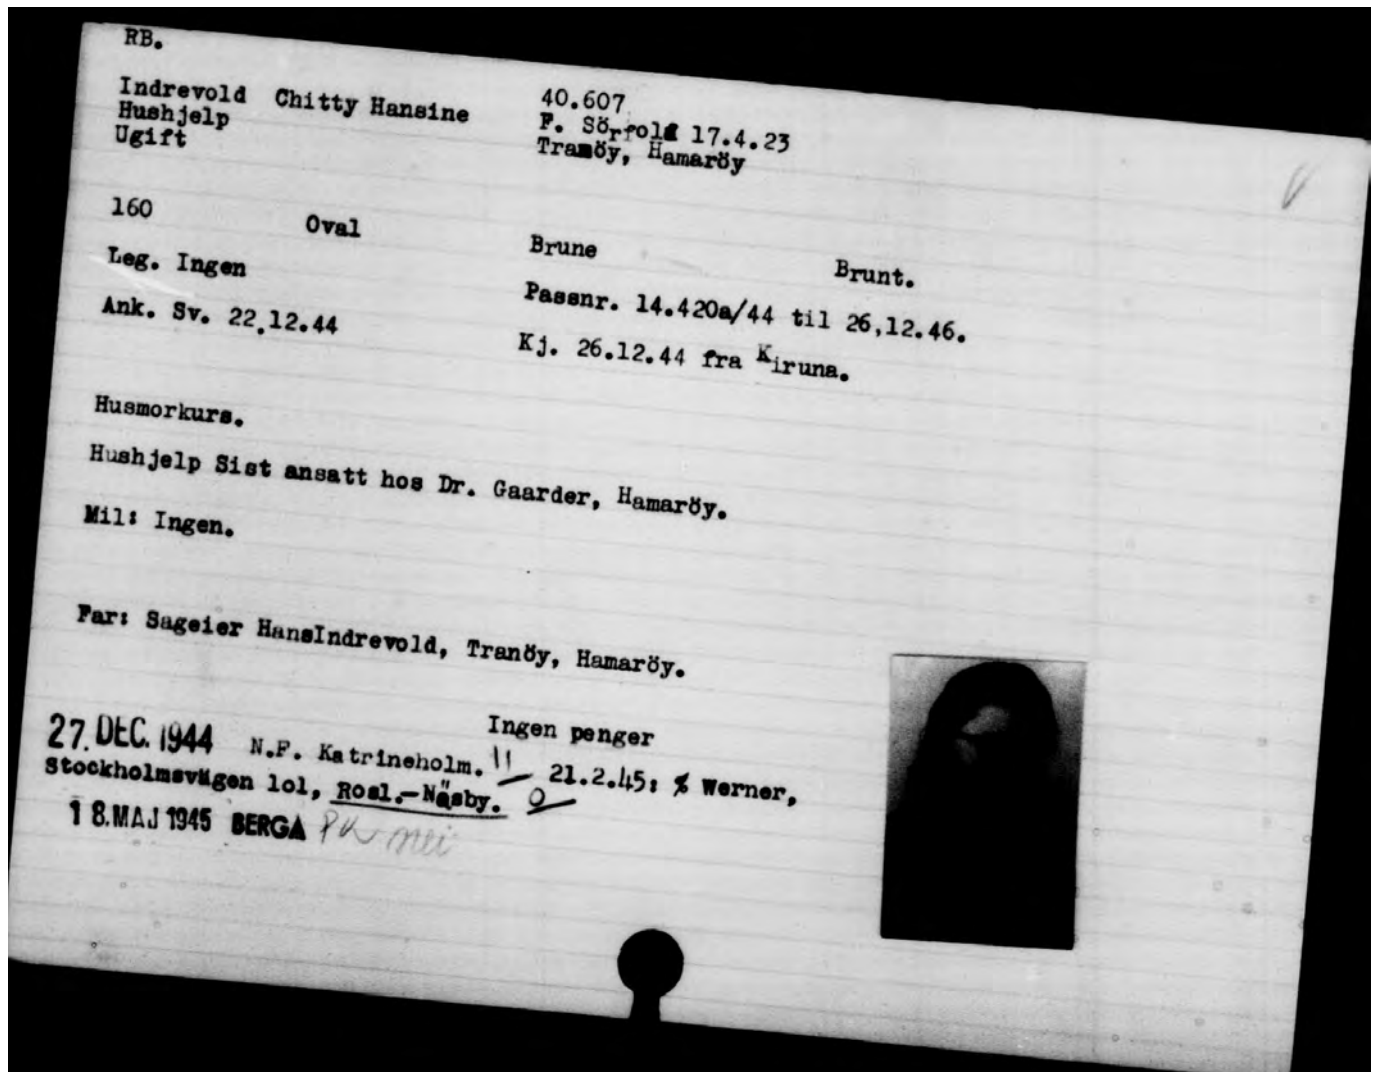 RB.
Indrevold Chitty Hansine 40.607
Hushjelp F. Sörfold 17.4.23
Ugift Tranöy, Hamaröy
160 Oval Brune Brunt.
Leg. Ingen Passnr. 14.420a/44 til 26,12.46.
Ank. Sv. 22.12.44 Kj. 26.12.44 fra Kiruna.
Husmorkurs.
Hushjelp Sist ansatt hos Dr. Gaarder, Hamaröy.
Mil: Ingen.
Far: Sageier HansIndrevold, Tranöy, Hamaröy.
Ingen penger
27. DEC. 1944 N.F. Katrineholm. 21.2.45: % Werner,
Stockholmsvägen lol, Rosl.-Näsby.
18. MAJ 1945 BERGA nei